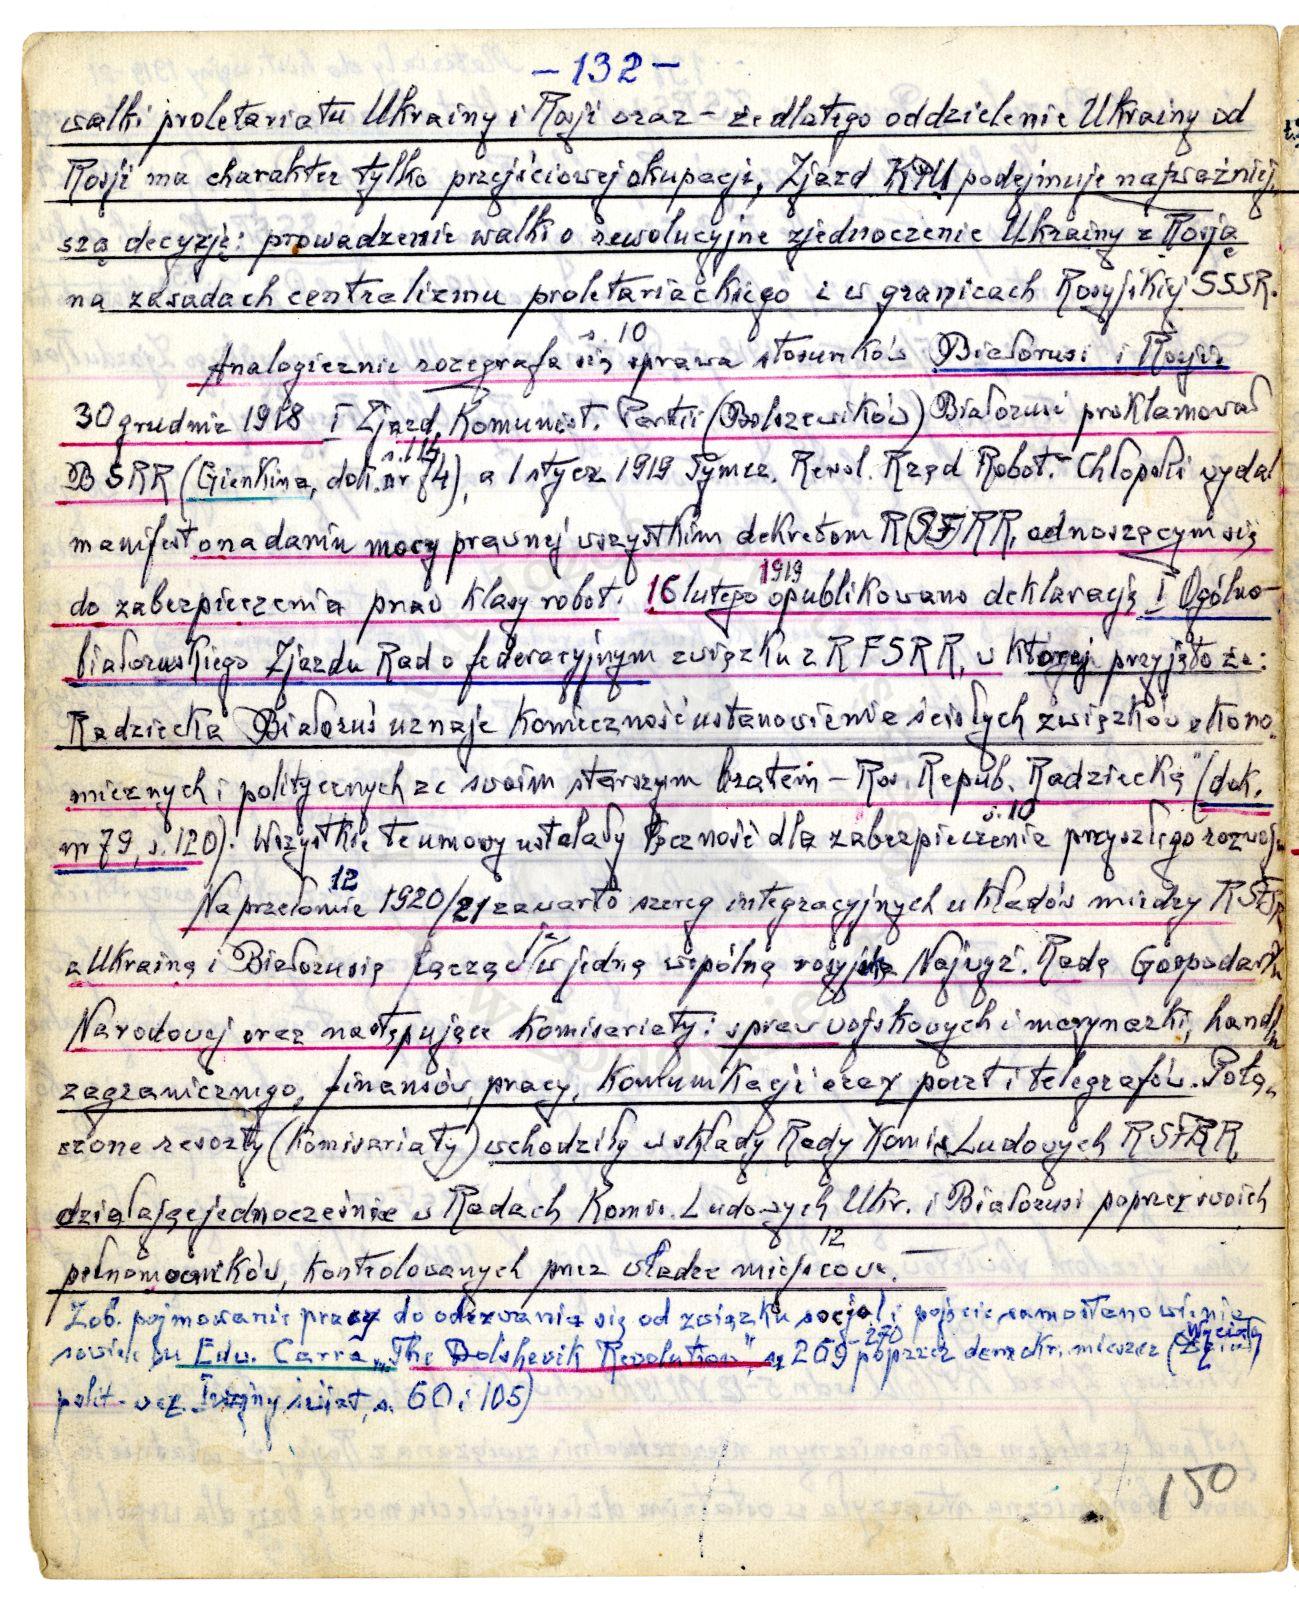 - 132 -
walki proletariatu Ukrainy i Rosji oraz - że dlatego oddzielenie Ukrainy od
Rosji ma charakter tylko przejściowej okupacji, Zjazd KPU podejmuje najważniej-
szą decyzję: prowadzenie walki o rewolucyjne zjednoczenie Ukrainy z Rosją
na zasadach centralizmu proletariackiego i w granicach Rosyjskiej SSSR.
s. 10
Analogicznie rozegrała się sprawa stosunków Białorusi i Rosji:
30 grudnia 1918 I Zjazd Komunist. Partii (Bolszewików) Białorusi proklamował
s. 114
BSRR (Gienkina, dok. nr 74), a 1 stycz 1919 Tymcz. Rewol. Rząd Robot.-Chłopski wydał
manifest o nadaniu mocy prawnej wszystkim dekretom RSFRR, odnoszącym się
1919
do zabezpieczenia praw klasy robot. 16 lutego opublikowano deklarację I Ogólno-
białoruskiego Zjazdu Rad o federacyjnym związku z RFSRR, w której przyjęto że:
Radziecka Białoruś uznaje konieczność ustanowienia ścisłych związków ekono-
micznych i politycznych ze swoim starszym bratem - Ros. Repub. Radziecką" (dok.
s. 10
nr 79, s. 120). Wszystkie te umowy ustalały łączność dla zabezpieczenia przyszłego rozwoju
12
Na przełomie 1920/21 zawarto szereg integracyjnych układów między RSFRR
a Ukrainą i Białorusią łącząc je w jedną wspólną rosyjską Najwyż. Radę Gospodarki
Narodowej oraz następujące komisariaty: spraw wojskowych i marynarki, handlu
zagranicznego, finansów, pracy, komunikacji oraz poczt i telegrafów. Połą-
czone resorty (komisariaty) wchodziły w składy Rady Komis. Ludowych RSFRR
działając jednocześnie w Radach Komis. Ludowych Ukr. i Białorusi poprzez swoich
12
pełnomocników, kontrolowanych przez władze miejscowe.
Zob. pojmowanie prawa do oderwania się od związku socjal i pojęcie samostanowienia
270
sowiec wu Edw. Carra „The Bolshevik Revolution", s. 269 poprzez demokr. mieszcz (Wyciąg
polit - s. 60 i 105)
150